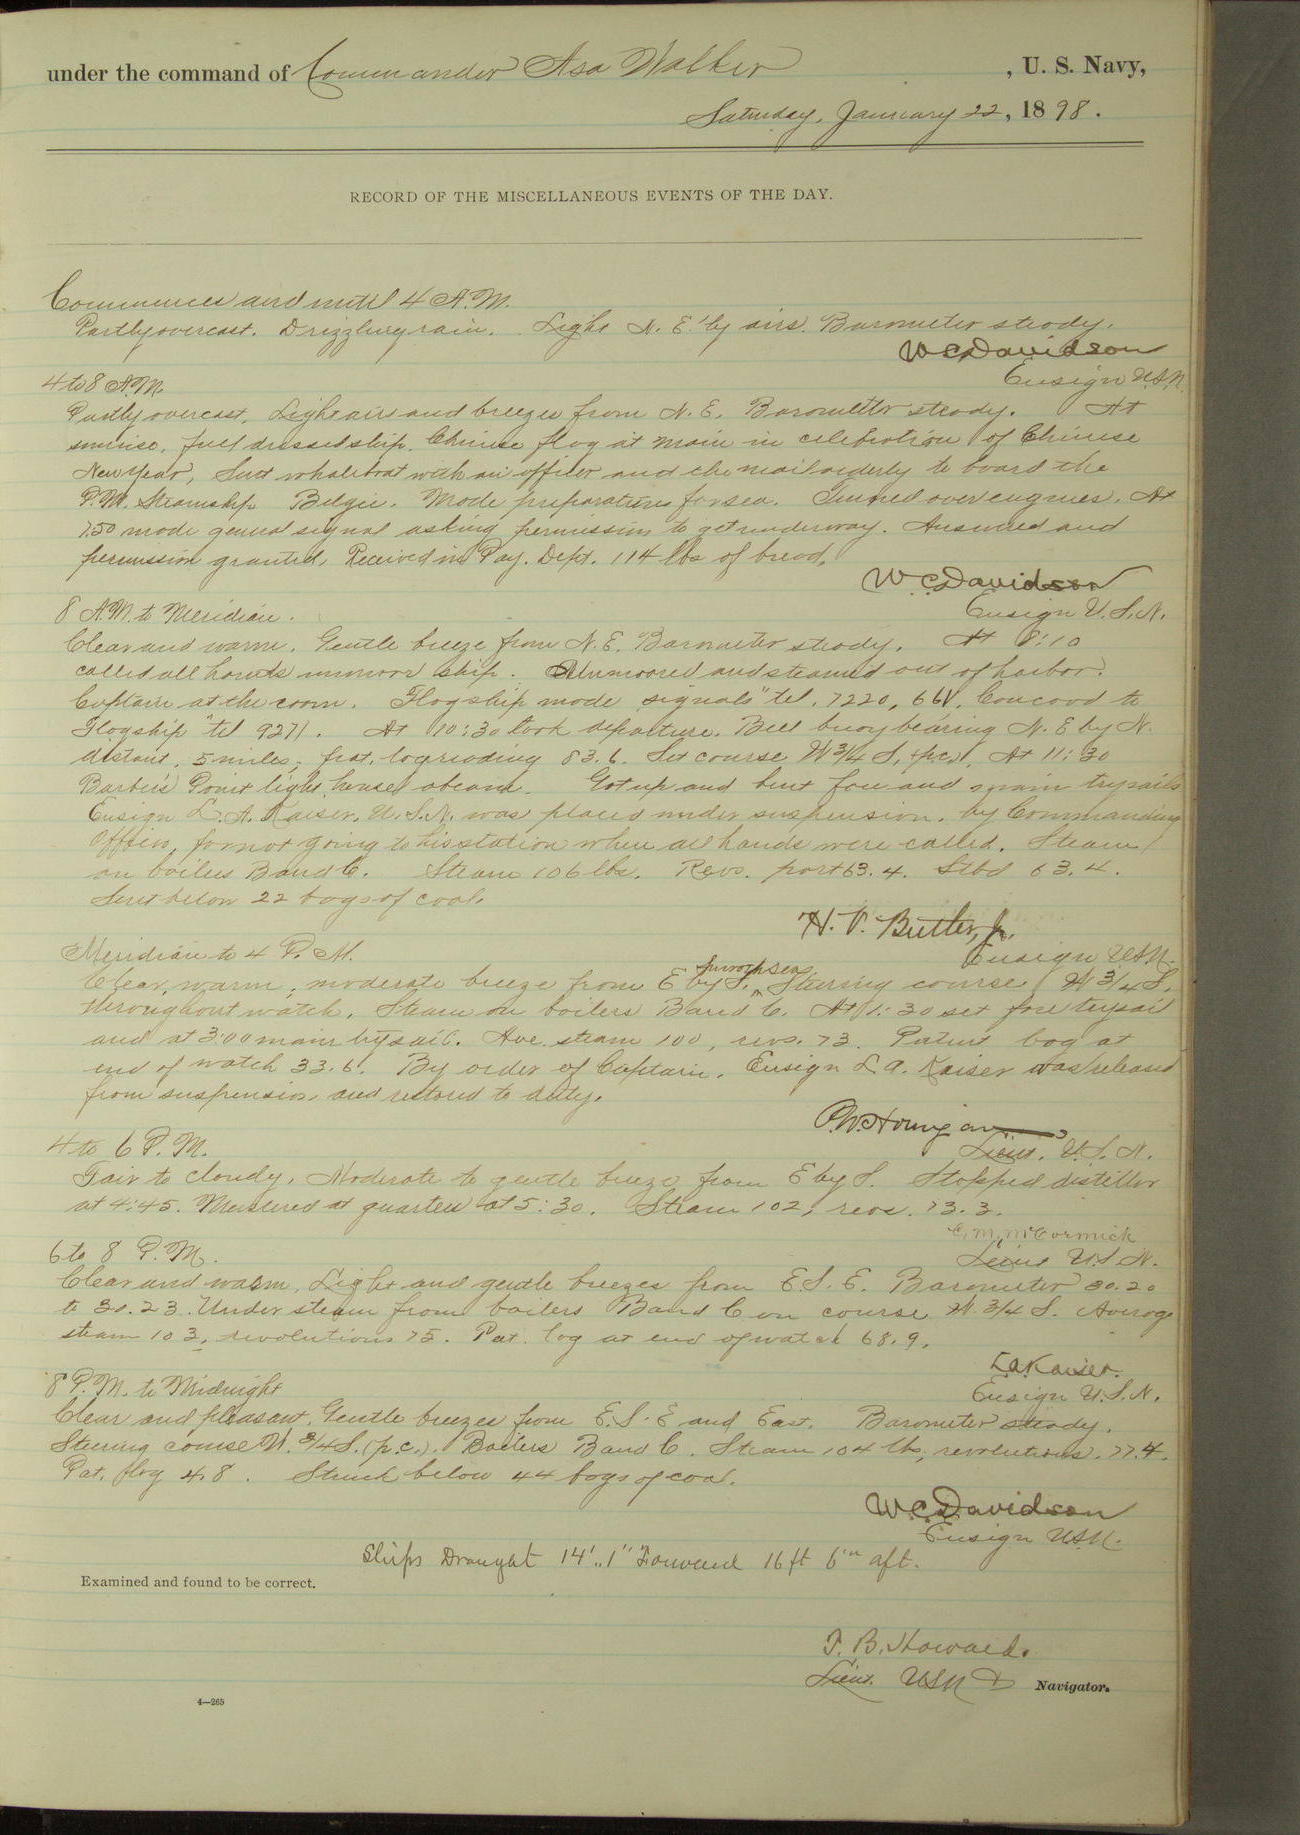 under the command of Commander Asa Walker, U. S. Navy,
Saturday, January 22, 1898.
RECORD OF THE MISCELLANEOUS EVENTS OF THE DAY.
Commences and until 4 A.M.
Partly overcast. Drizzling rain. Light N. E.'ly airs. Barometer steady.
W C Davidson
Ensign U.S.N.
4 to 8 A.M.
Partly overcast. Light airs and breezes from N. E. Barometer steady. At
sunrise, full dressed ship, Chinese flag at main in celebration of Chinese
New Year, Sent whaleboat with an officer and the mail orderly to board the
P.M. Steamship Belgic. Made preparations for sea. Turned over engines. At
7.50 made general signal asking permission to get underway. Answered and
permission granted, Received in Pay. Dept. 114 lbs of bread.
W C Davidson
Ensign U.S.N.
8 A.M. to Meridian.
Clear and warm. Gentle breeze from N. E. Barometer steady. At 8:10
called all hands unmoor ship. Unmoored and steamed out of harbor.
Captain at the conn. Flagship made signals "tel. 7220, 661. Concord to
Flagship "tel 9271. At 10:30 took departure. Bell buoy bearing N. E by N.
distant, 5 miles; pat. log reading 83.6. Set course W 3/4 S. (p.c.). At 11:30
Barber's Point light house abeam. Got up and bent fore and main trysails
Ensign L. A. Kaiser, U.S.N. was placed under suspension, by Commanding
Officer, for not going to his station when all hands were called. Steam
on boilers B and C. Steam 106 lbs. Revs. port 63.4. Stbd 63.4.
Sent below 22 bags of coal.
H. V. Butler, Jr.
Ensign USN.
Meridian to 4 P.M.
Clear, warm, moderate breeze from E by S, smooth sea. Steering course W 3/4 S.
throughout watch. Steam on boilers B and C. At 1:30 set fore trysail
and at 3:00 main trysail. Ave. steam 100, revs. 73. Patent log at
end of watch 33.6. By order of Captain, Ensign L. A. Kaiser was released
from suspension and restored to duty.
P.W. Hourigan
Lieut. U.S.N.
4 to 6 P.M.
Fair to cloudy. Moderate to gentle breeze from E by S. Stopped distiller
at 4:45. Mustered at quarters at 5:30. Steam 102, revs. 73.3.
C. M. McCormick
Lieut U.S.N.
6 to 8 P.M.
Clear and warm. Light and gentle breezes from E.S.E. Barometer 30.20
to 30.23. Under steam from boilers B and C on course W. 3/4 S. Average
steam 103, revolutions 75. Pat. log at end of watch 68.9.
L A Kaiser.
Ensign U.S.N.
8 P.M. to Midnight
Clear and pleasant. Gentle breezes from E.S.E and East. Barometer steady.
Steering course W. 3/4 S. (p.c.). Boilers B and C. Steam 104 lbs, revolutions. 77.4.
Pat. log 4.8. Struck below 44 bags of coal.
W C Davidson
Ensign USN.
Ships Draught 14' 1" Forward 16 ft 6 in aft.
Examined and found to be correct.
T. B. Howard.
Lieut. USN
Navigator.
4—265